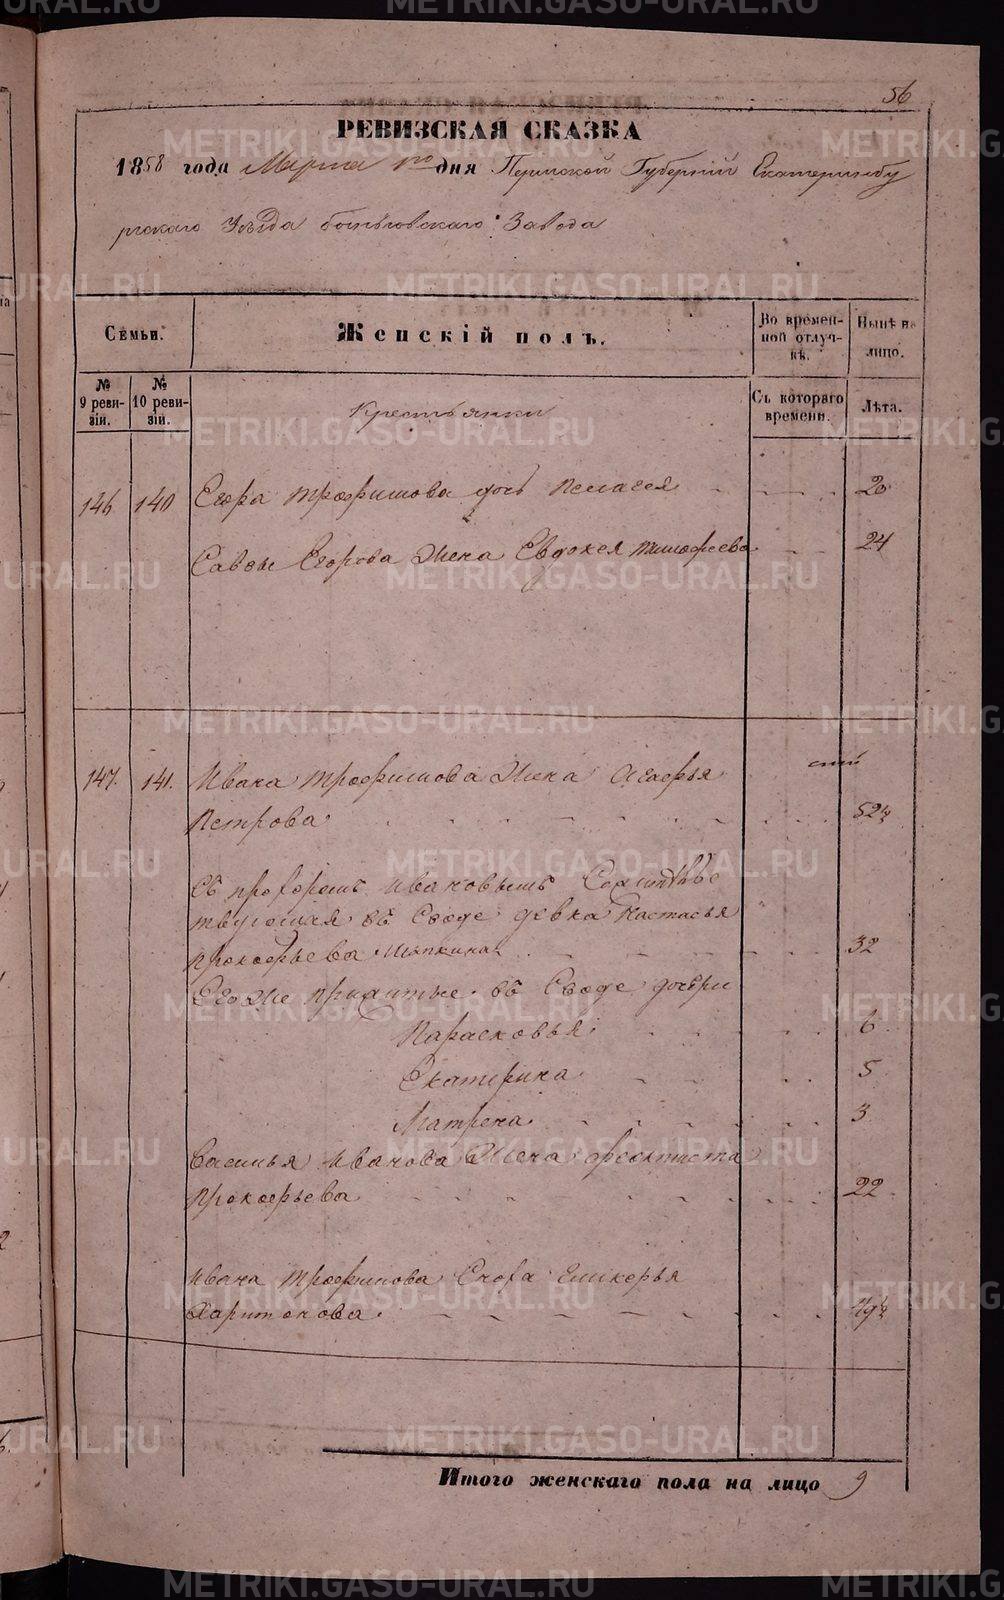 METRIKI.GASO-URAL.RU
56
РЕВИЗСКАЯ СКАЗКА
1858 года Марта 1го дня Пермской Губерніи Екатеринбу
ргскаго Уѣзда Завода
Семьи.
Женскій полъ.
Во времен-
ной отлуч-
кѣ.
Нынѣ на
лицо.
№
9 реви-
зіи.
№
10 реви-
зіи.
Крестьянки
Съ котораго
времени.
Лѣта.
146 140 Егора Трофимова дочь Пелагея 20
Савы Егорова Жена Евдокея Тимофеева 24
147. 141. Ивана Трофимова Жена Агафья
Петрова 52
Съ Ивановымъ
въ Сводѣ девка Настасья
Прокофьева 32
Его же прижитые въ Сводѣ дочери
Парасковья 6
Екатерина 5
Матрена 3
Василья Иванова Жена Феоктиста
Прокофьева 22
Ивана Трофимова Сноха
Харитонова
Итого женскаго пола на лицо 9